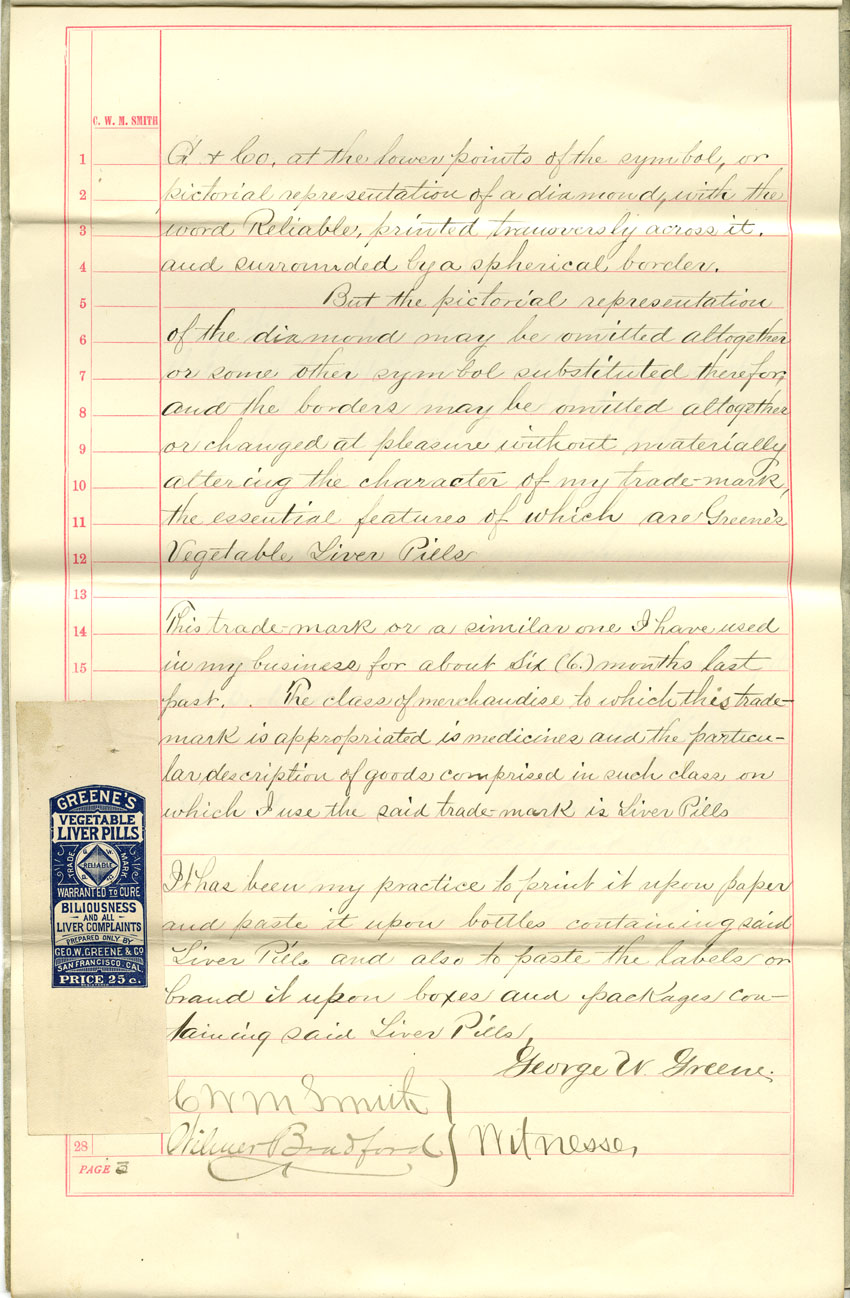 C. W. M. SMITH
1 G. & Co. at the lower points of the symbol, or
2 pictorial representation of a diamond, with the
3 word Reliable, printed transversly across it.
4 and surrounded by a spherical border.
5 But the pictorial representation
6 of the diamond may be omitted altogether
7 or some other symbol substituted therefor,
8 and the borders may be omitted altogether
9 or changed at pleasure without materially
10 altering the character of my trade-mark,
11 the essential features of which are Greene's
12 Vegetable Liver Pills
13
14 This trade-mark or a similar one I have used
15 in my business for about Six (6.) months last
past. . The class of merchandise to which this trade-
mark is appropriated is medicines and the particu-
lar description of goods comprised in such class on
which I use the said trade-mark is Liver Pills
It has been my practice to print it upon paper
and paste it upon bottles containing said
Liver Pills and also to paste the labels or
brand it upon boxes and packages con-
taining said Liver Pills,
George W. Greene.
C W M Smith
28 Wilmer Bradford } Witnesses
PAGE 5
GREENE'S
VEGETABLE
LIVER PILLS
TRADE MARK
RELIABLE
WARRANTED TO CURE
BILIOUSNESS
AND ALL
LIVER COMPLAINTS
PREPARED ONLY BY
GEO. W. GREENE & CO
SAN FRANCISCO, CAL.
PRICE 25 c.